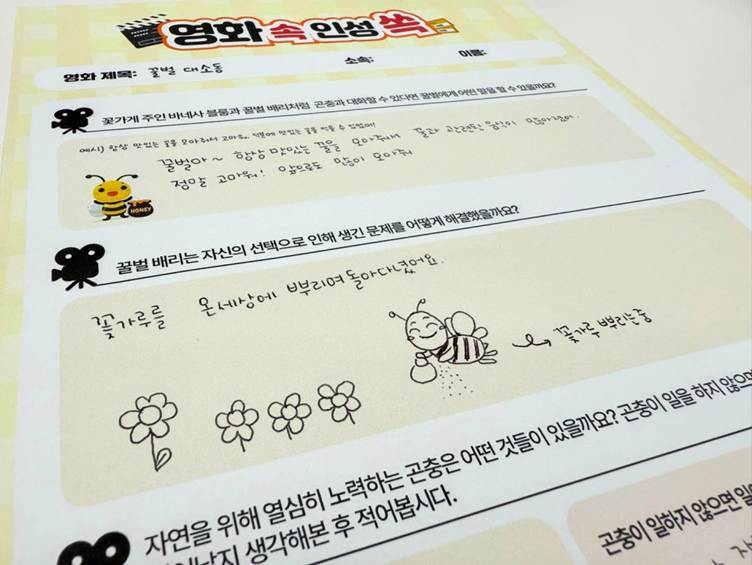 영화 속 인성 쏙
영화 제목: 꿀벌 대소동 소속: 이름:
꽃가게 주인 바네사 블룸과 꿀벌 배리처럼 곤충과 대화할 수 있다면 꿀벌에게 어떤 말을 할 수 있을까요?
예시) 항상 맛있는 꿀을 모아줘서 고마워. 덕분에 맛있는 꿀을 먹을 수 있었어!
꿀벌아~ 항상 맛있는 꿀을 모아줘 꿀과 관련된 음식이 많아졌어.
정말 고마워! 앞으로도 많이 모아줘
HONEY
꿀벌 배리는 자신의 선택으로 인해 생긴 문제를 어떻게 해결했을까요?
꽃가루를 온세상에 뿌리며 돌아다녔어요.
꽃가루 뿌리는중
자연을 위해 열심히 노력하는 곤충은 어떤 것들이 있을까요? 곤충이 일을 하지 않으면
생각해본 후 적어봅시다.
곤충이 일하지 않으면